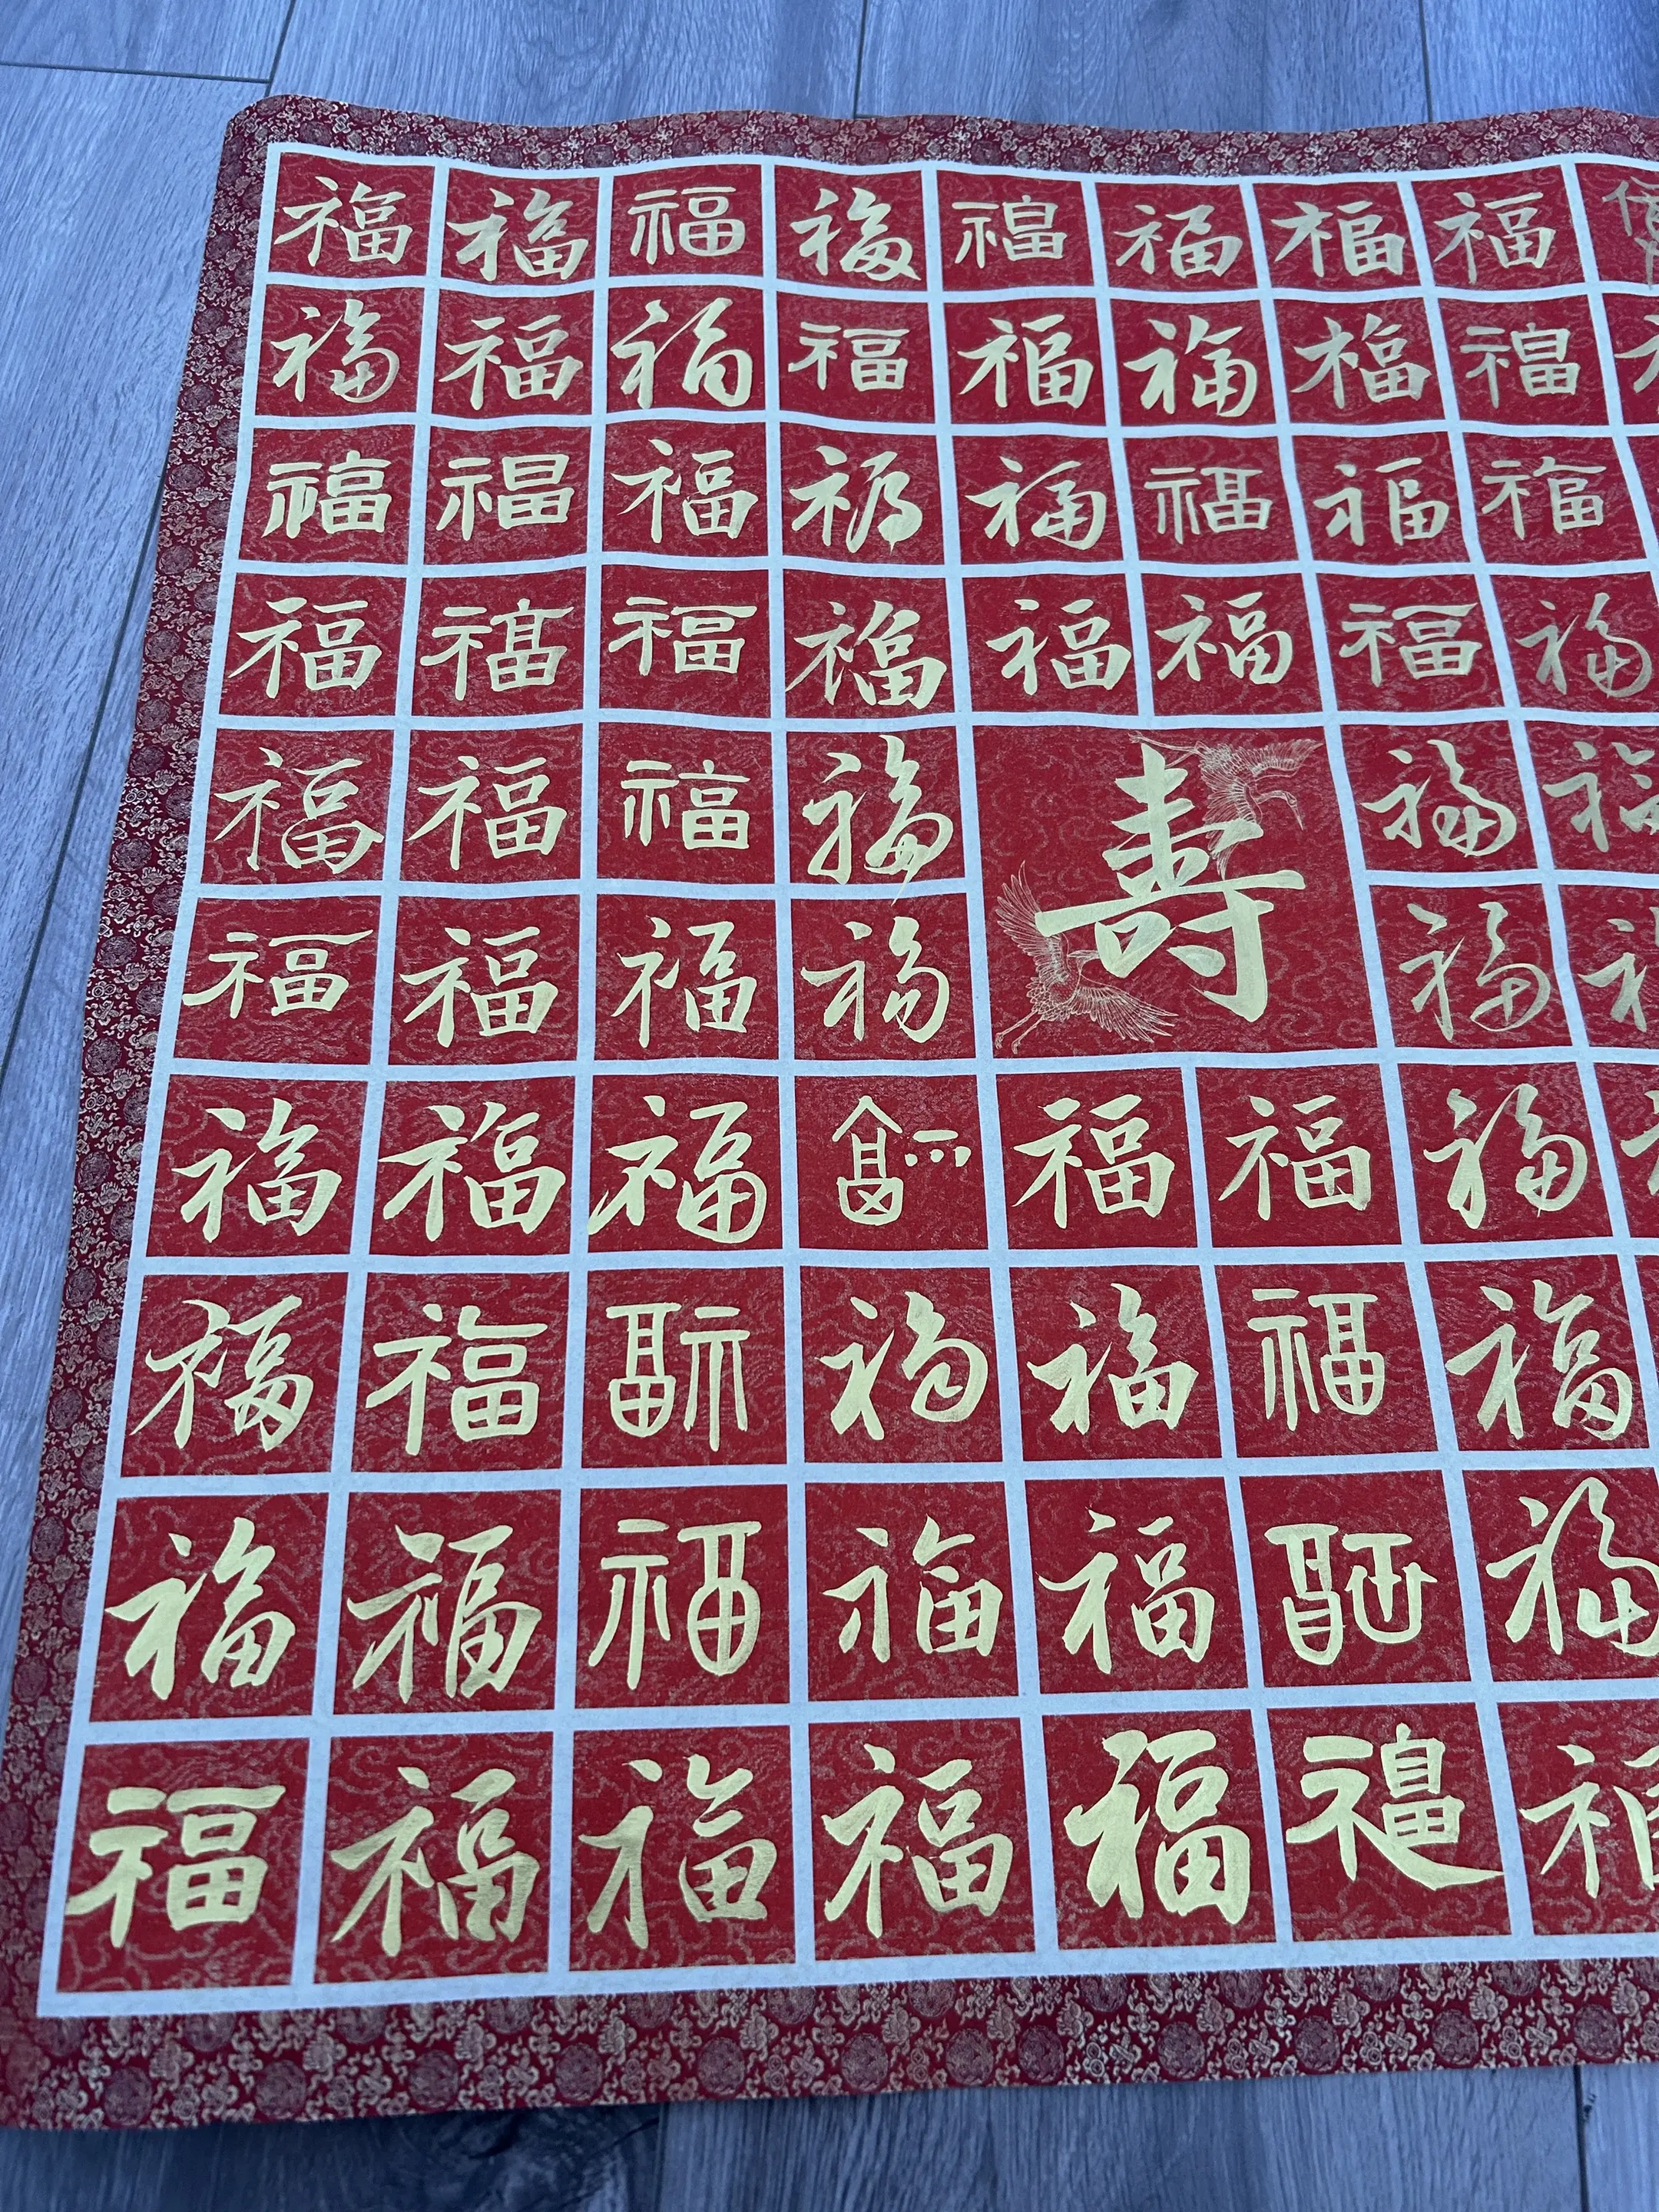 福福福福福福福福
福福福福福福福福
福福福福福福福福
福福福福福福福福
福福福福寿福福
福福福福福
福福福福福福福
福福福福福福福
福福福福福福福
福福福福福福